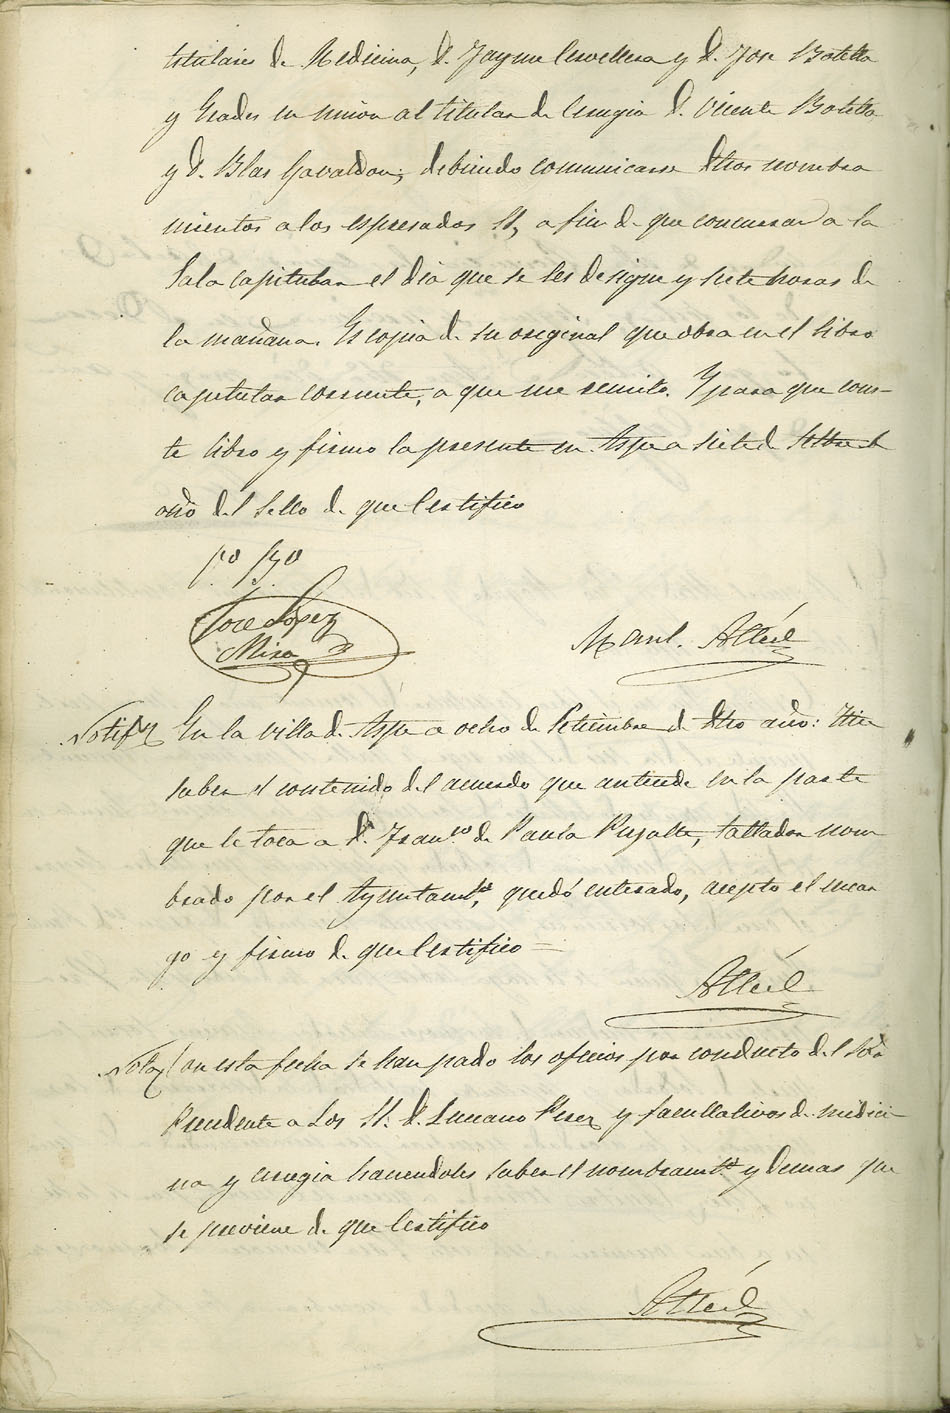 titulares de Medicina, D. Jayme Cervellera y D. Jose Botella
y Grades en union al titular de Cirugia D. Vicente Botella
y D. Blas Gavaldon; debiendo comunicarse dhos nombra
mientos a los espresados SS, a fin de que concurran a la
Sala capitular el dia que se les designe y siete horas de
la mañana. Es copia de su original que obra en el libro
capitular corriente, a que me remito. Y para que cons-
te libro y firmo la presente en Aspe a siete de Setbre del
año del Sello de que Certifico
Jose Lopez
Mira
Manl. Alted
Notifn En la villa de Aspe a ocho de Setiembre de dho año: Hice
saber el contenido del acuerdo que antecede en la parte
que le toca a D. Franco de Paula Pujalte, tallador nom
brado por el Ayuntamto, quedó enterado, acepto el encar
go y firmo de que Certifico =
Alted
Nota Con esta fecha se han pasado los oficios por conducto del Sor
Presidente a Los SS. D. Luciano Perez y facultativos de medici-
na y cirugia haciendoles saber el nombramto y demas que
se previene de que Certifico
Alted